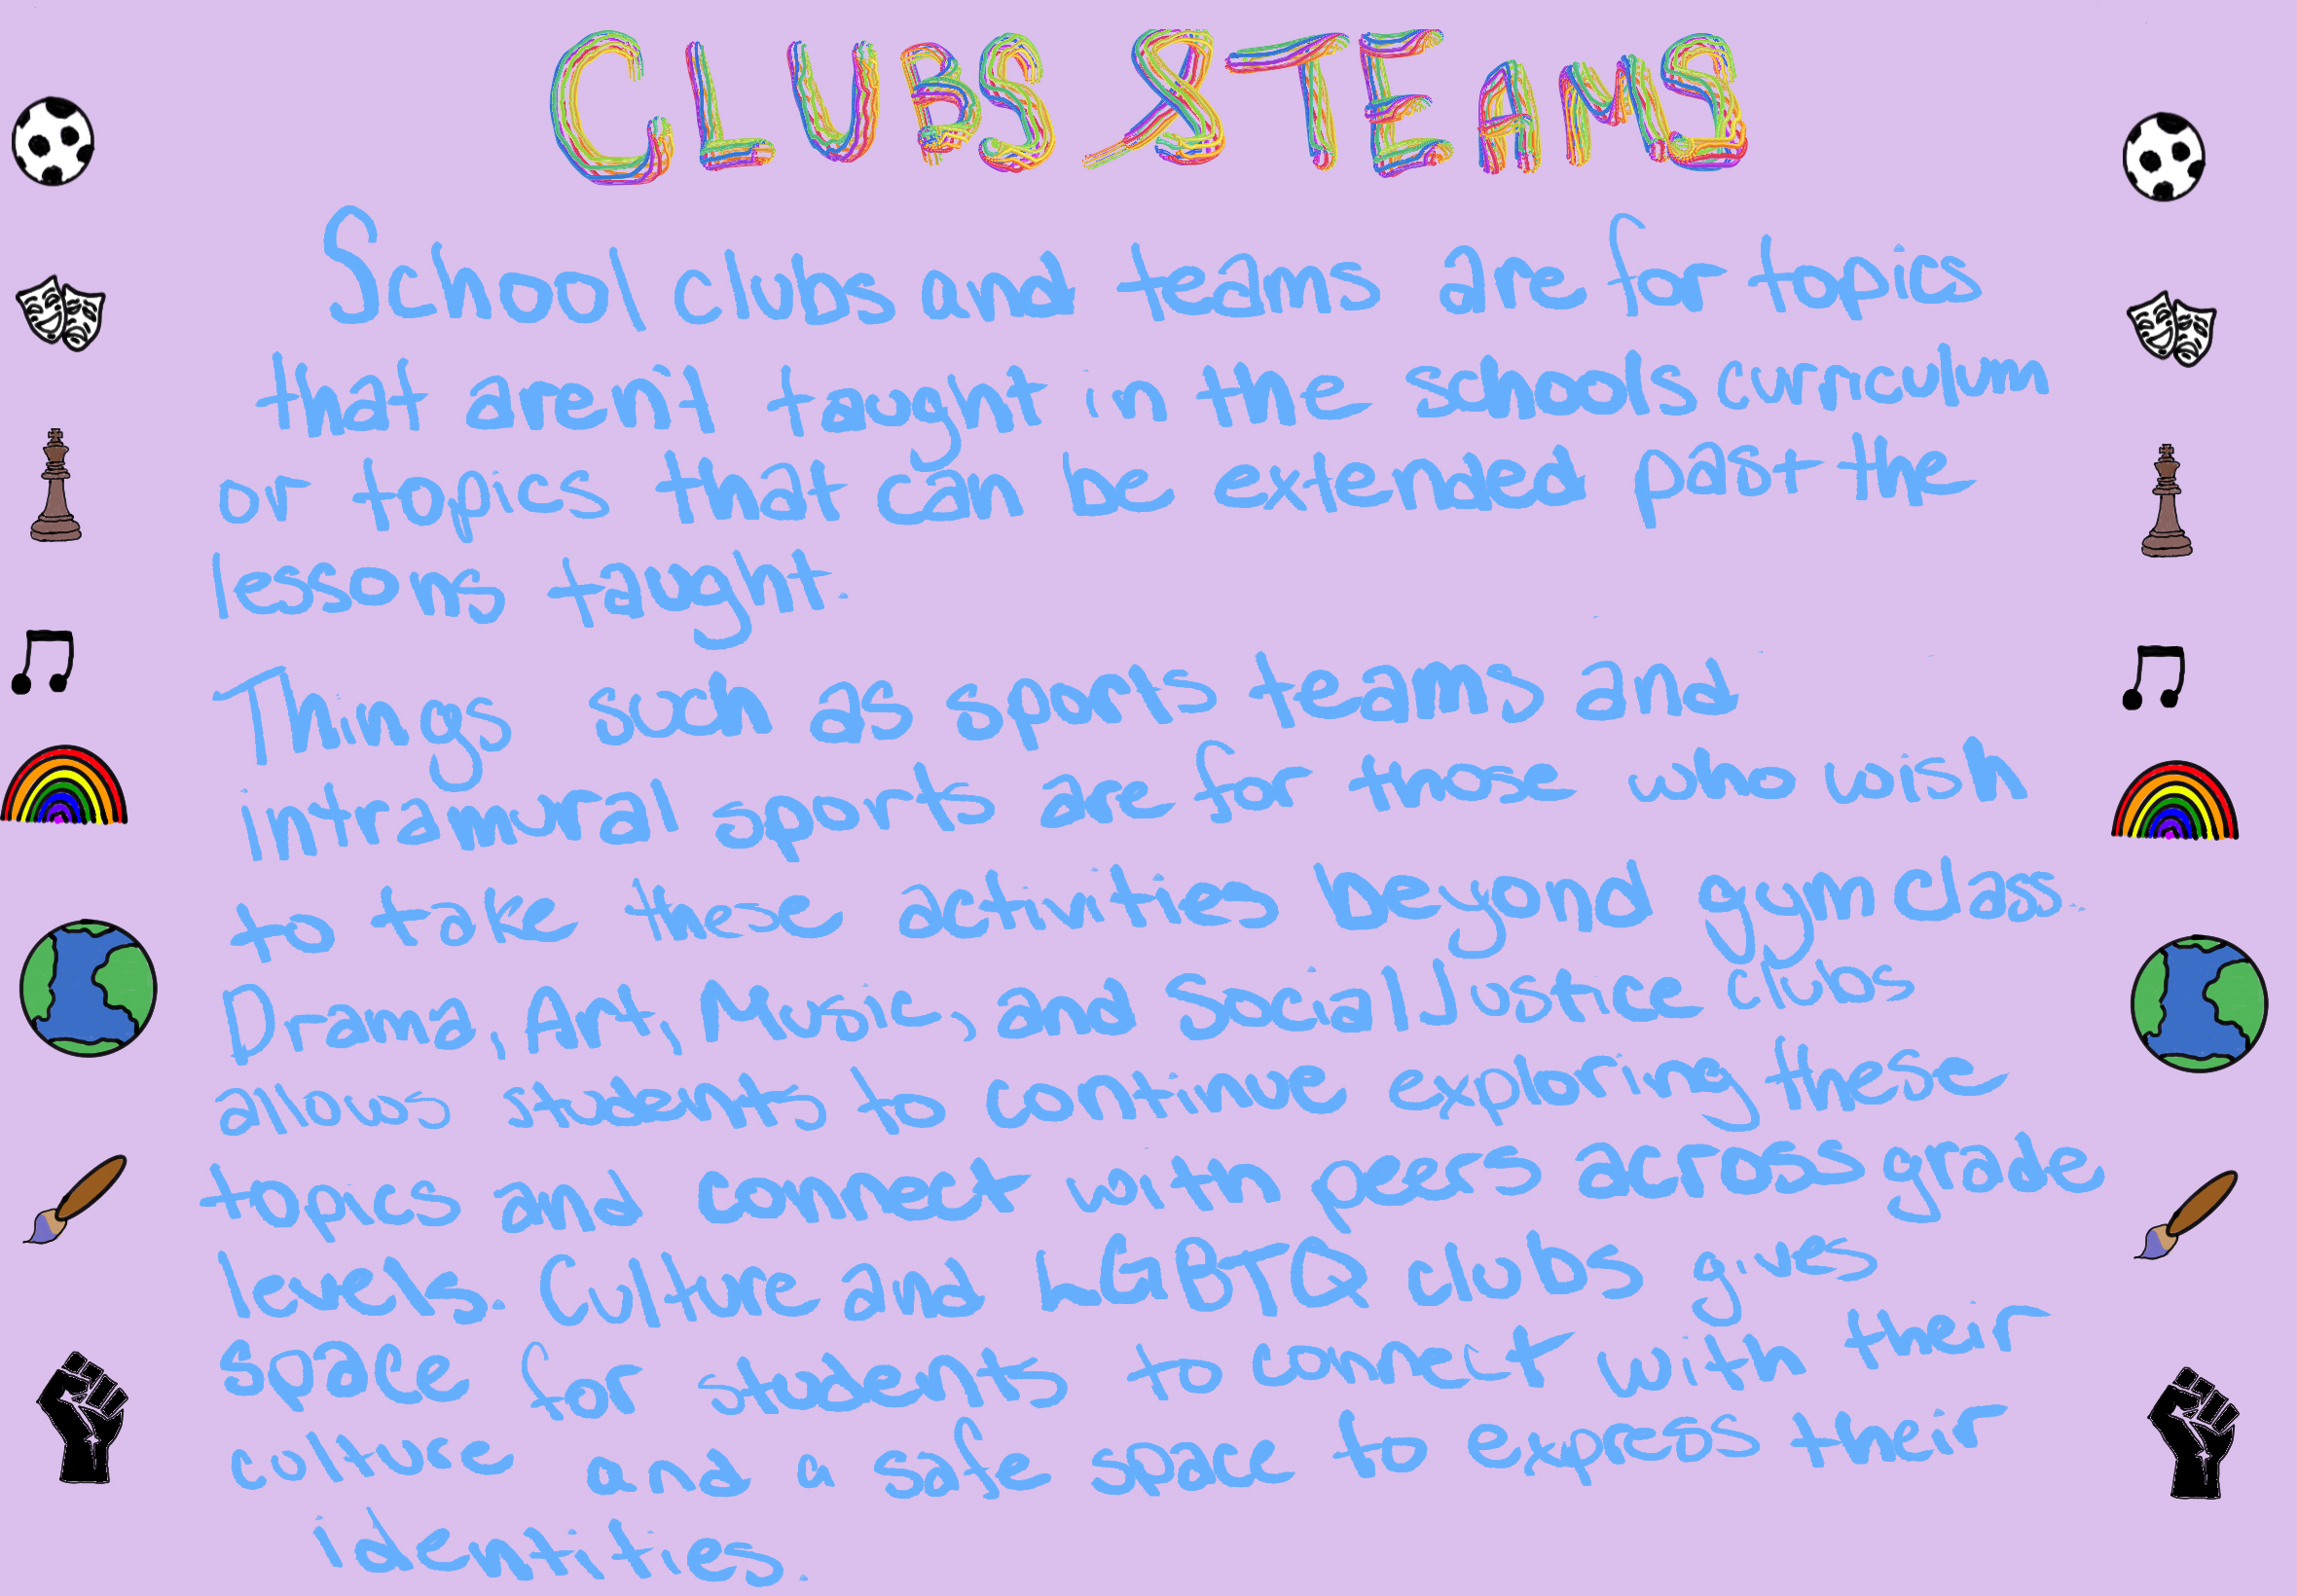 CLUBS & TEAMS
School clubs and teams are for topics
that aren't taught in the schools curriculum
or topics that can be extended past the
lessons taught.
Things such as sports teams and
intramural sports are for those who wish
to take these activities beyond gym class.
Drama, Art, Music, and Social Justice clubs
allows students to continue exploring these
topics and connect with peers across grade
levels. Culture and LGBTQ clubs gives
space for students to connect with their
culture and a safe space to express their
identities.